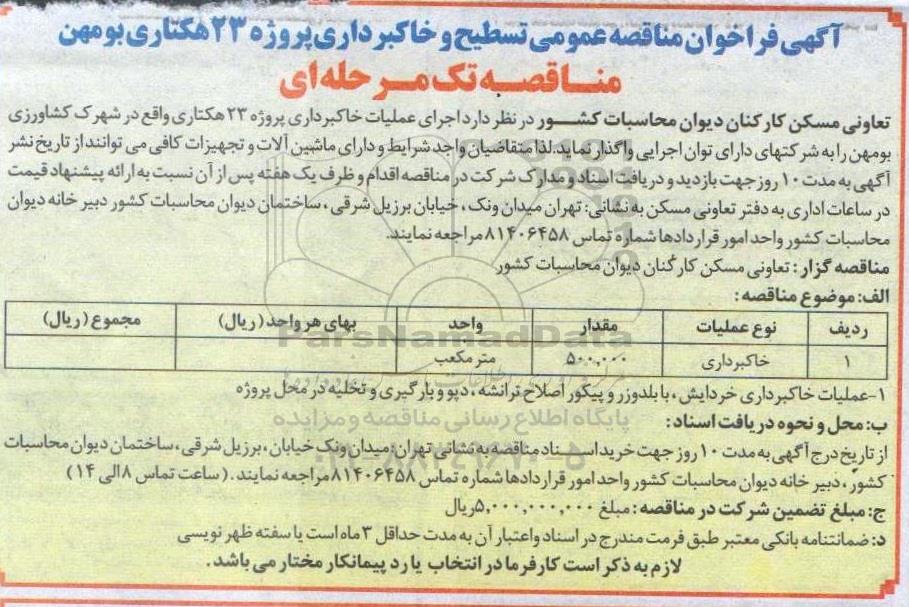 آگهی فراخوان مناقصه عمومی تسطیح و خاکبرداری پروژه ۲۳ هکتاری بومهن
مناقصه تک مرحله ای
تعاونی مسکن کارکنان دیوان محاسبات کشور در نظر دارد اجرای عملیات خاکبرداری پروژه ۲۳ هکتاری واقع در شهرک کشاورزی
بومهن را به شرکتهای دارای توان اجرایی واگذار نماید. لذا متقاضیان واجد شرایط و دارای ماشین آلات و تجهیزات کافی می توانند از تاریخ نشر
آگهی به مدت ۱۰ روز جهت بازدید و دریافت اسناد و مدارک شرکت در مناقصه اقدام و ظرف یک هفته پس از آن نسبت به ارائه پیشنهاد قیمت
در ساعات اداری به دفتر تعاونی مسکن به نشانی: تهران میدان ونک، خیابان برزیل شرقی، ساختمان دیوان محاسبات کشور دبیر خانه دیوان
محاسبات کشور واحد امور قراردادها شماره تماس ۸۱۴۰۶۴۵۸ مراجعه نمایند.
مناقصه گزار: تعاونی مسکن کارکنان دیوان محاسبات کشور
الف: موضوع مناقصه:
ردیف نوع عملیات مقدار واحد بهای هر واحد (ریال) مجموع (ریال)
۱ خاکبرداری ۵۰۰,۰۰۰ متر مکعب
۱- عملیات خاکبرداری خردایش، با بلدوزر و پیکور اصلاح ترانشه، دپو و بارگیری و تخلیه در محل پروژه
ب: محل و نحوه دریافت اسناد:
از تاریخ درج آگهی به مدت ۱۰ روز جهت خرید اسناد مناقصه به نشانی تهران: میدان ونک خیابان، برزیل شرقی، ساختمان دیوان محاسبات
کشور، دبیر خانه دیوان محاسبات کشور واحد امور قراردادها شماره تماس ۸۱۴۰۶۴۵۸ مراجعه نمایند. (ساعت تماس ۸ الی ۱۴)
ج: مبلغ تضمین شرکت در مناقصه: مبلغ ۵,۰۰۰,۰۰۰,۰۰۰ ریال
د: ضمانتنامه بانکی معتبر طبق فرمت مندرج در اسناد و اعتبار آن به مدت حداقل ۳ ماه است یا سفته ظهر نویسی
لازم به ذکر است کارفرما در انتخاب یا رد پیمانکار مختار می باشد.
ParsNamadData
پایگاه اطلاع رسانی مناقصه و مزایده